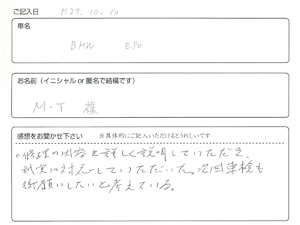 ご記入日 H27.10.10
車名
BMW E90
お名前（イニシャル or 匿名で結構です）
M・T 様
感想をお聞かせ下さい ※具体的にご記入いただけるとうれしいです
○修理の内容を詳しく説明していただき、
誠実に対応していただいた。次回車検も
御願いしたいと考えている。